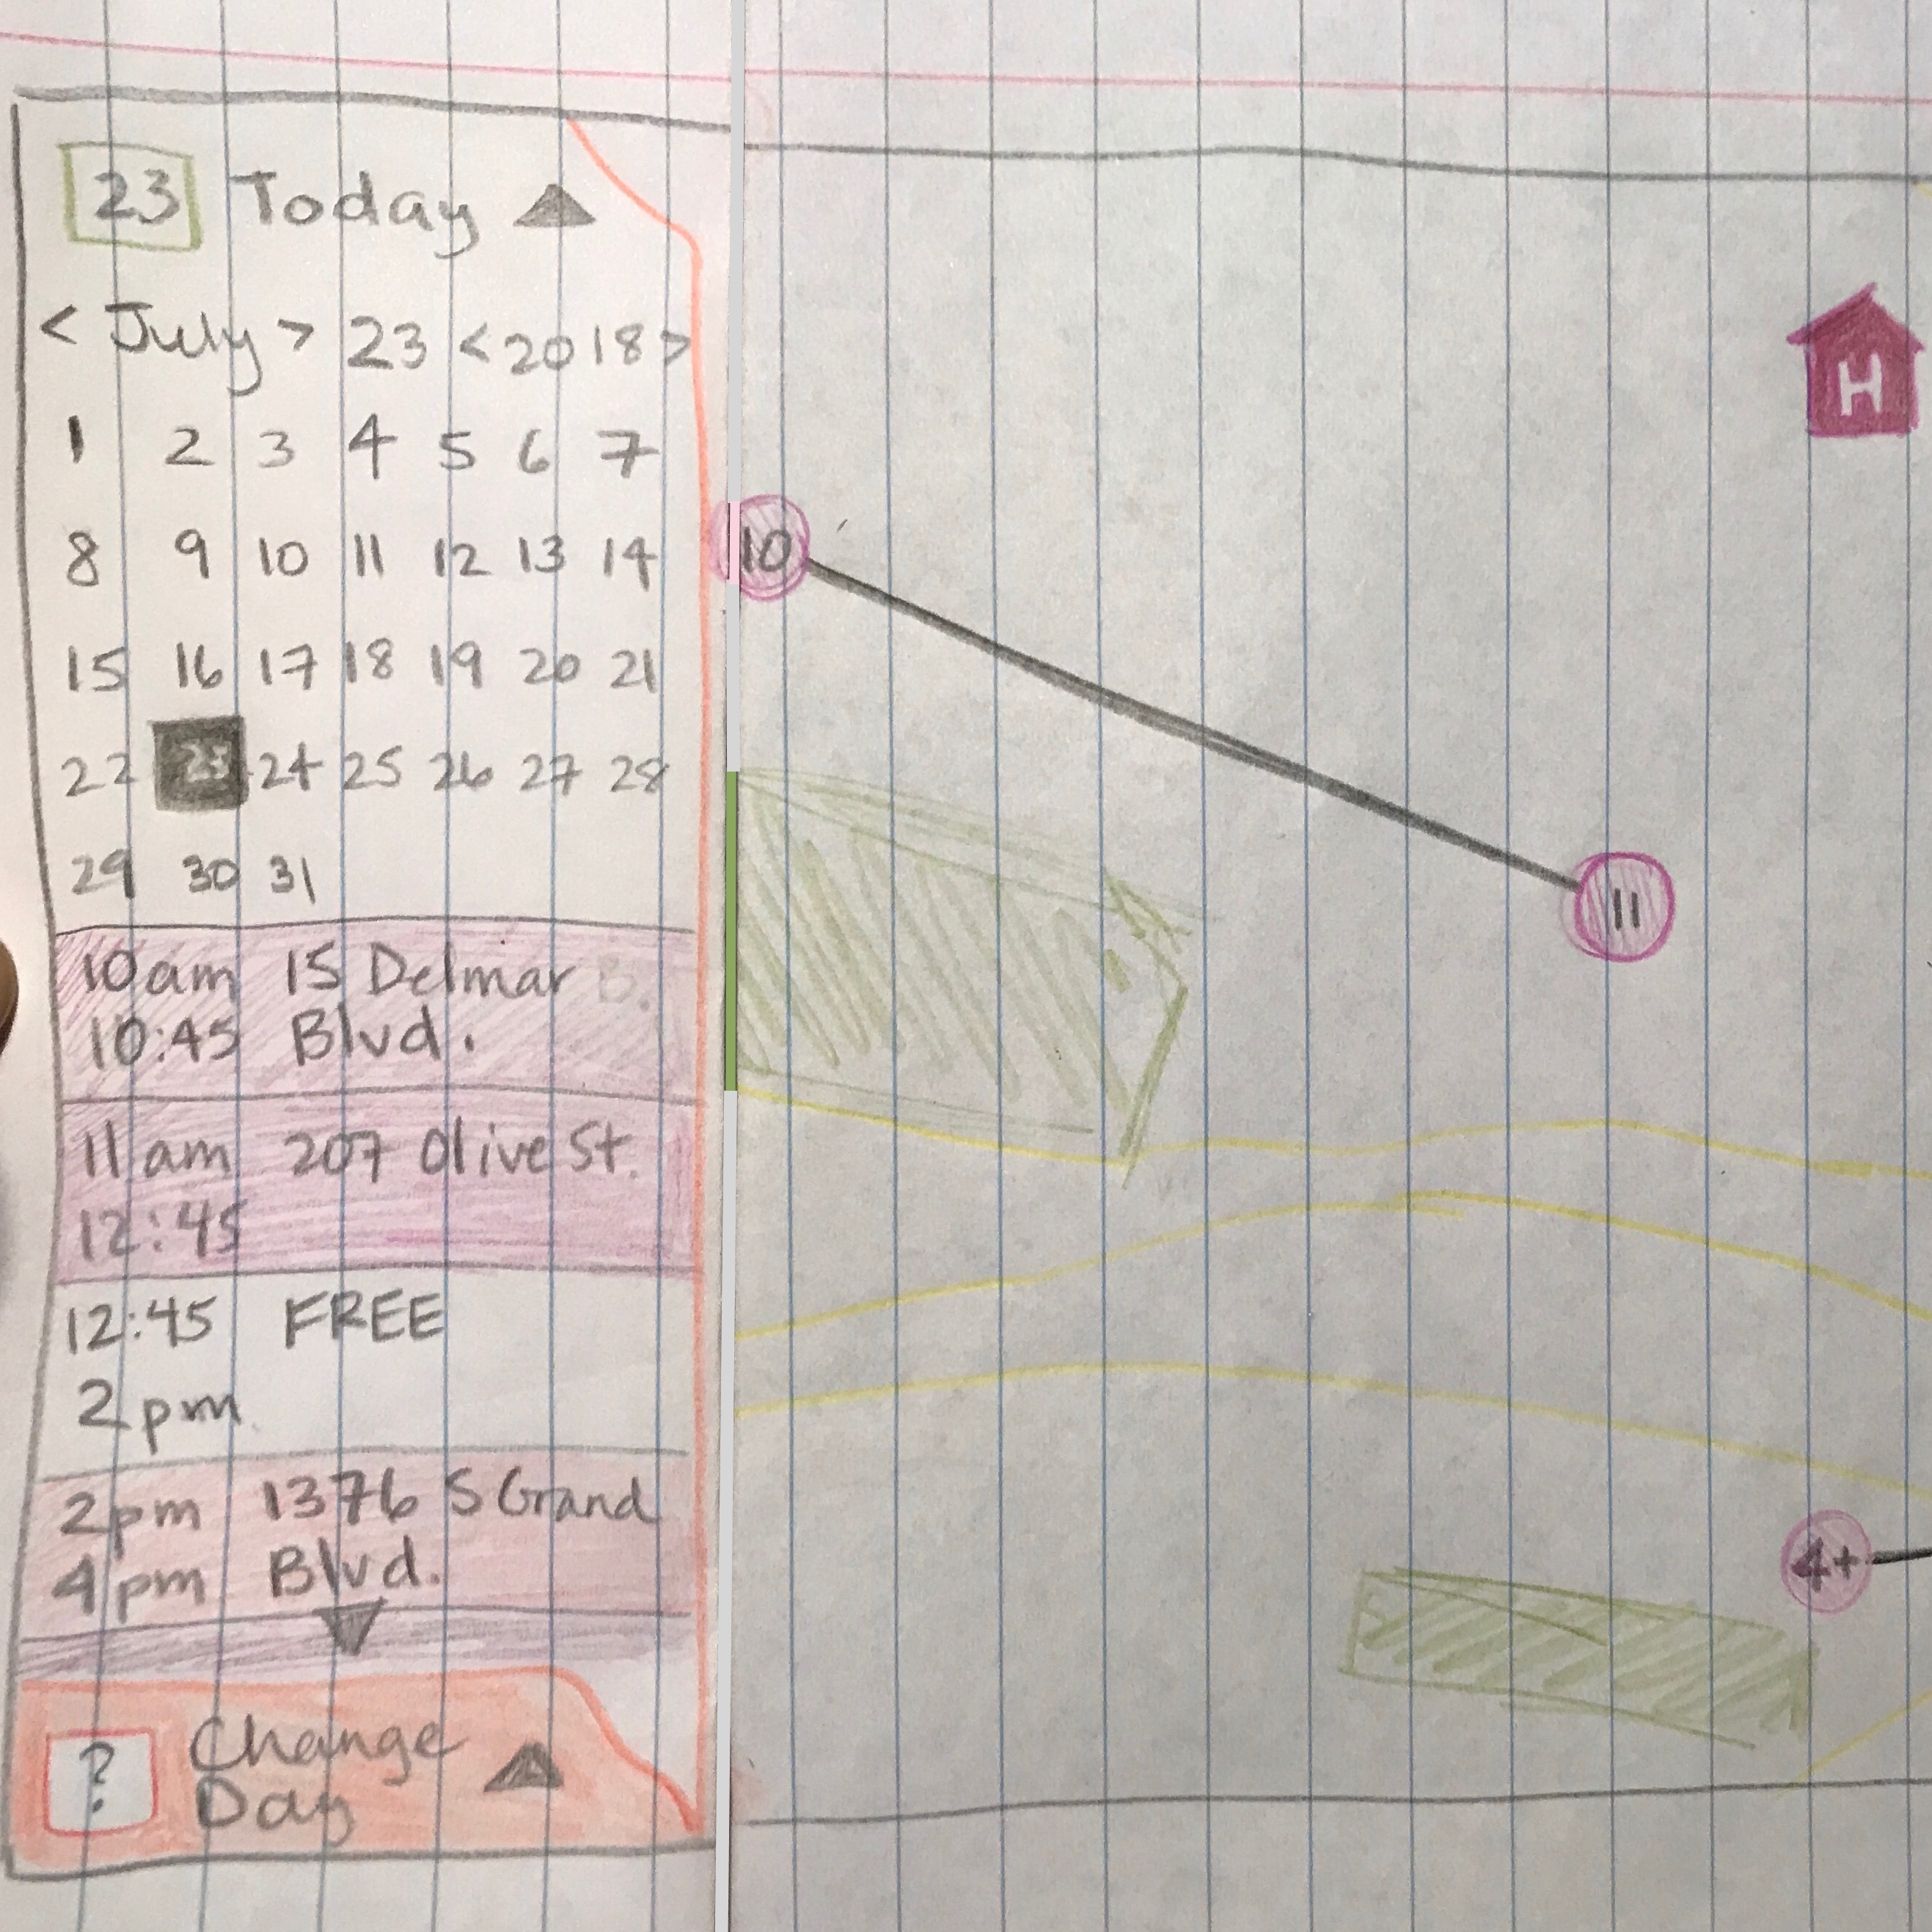 23 Today
< July > 23 < 2018 >
1 2 3 4 5 6 7
8 9 10 11 12 13 14
15 16 17 18 19 20 21
22 23 24 25 26 27 28
29 30 31
10am 15 Delmar B.
10:45 Blvd.
11am 207 Olive St.
12:45
12:45 FREE
2pm
2pm 1376 S Grand
4pm Blvd.
? Change
Day
H
10
11
4+